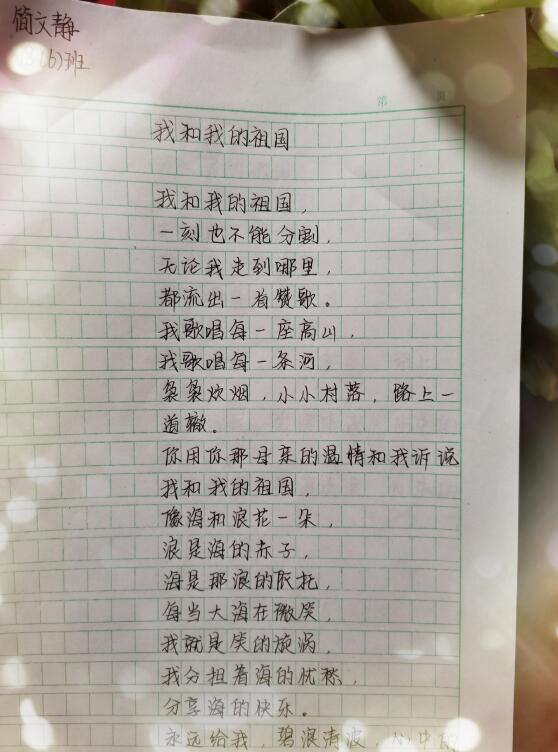 简文静
(6)班
第 页
我和我的祖国
我和我的祖国,
一刻也不能分割,
无论我走到哪里,
都流出一首赞歌。
我歌唱每一座高山,
我歌唱每一条河,
袅袅炊烟,小小村落,路上一
道辙。
你用你那母亲的温情和我诉说
我和我的祖国,
像海和浪花一朵,
浪是海的赤子,
海是那浪的依托,
每当大海在微笑,
我就是笑的旋涡,
我分担着海的忧愁,
分享海的快乐。
永远给我,碧浪清波,心中